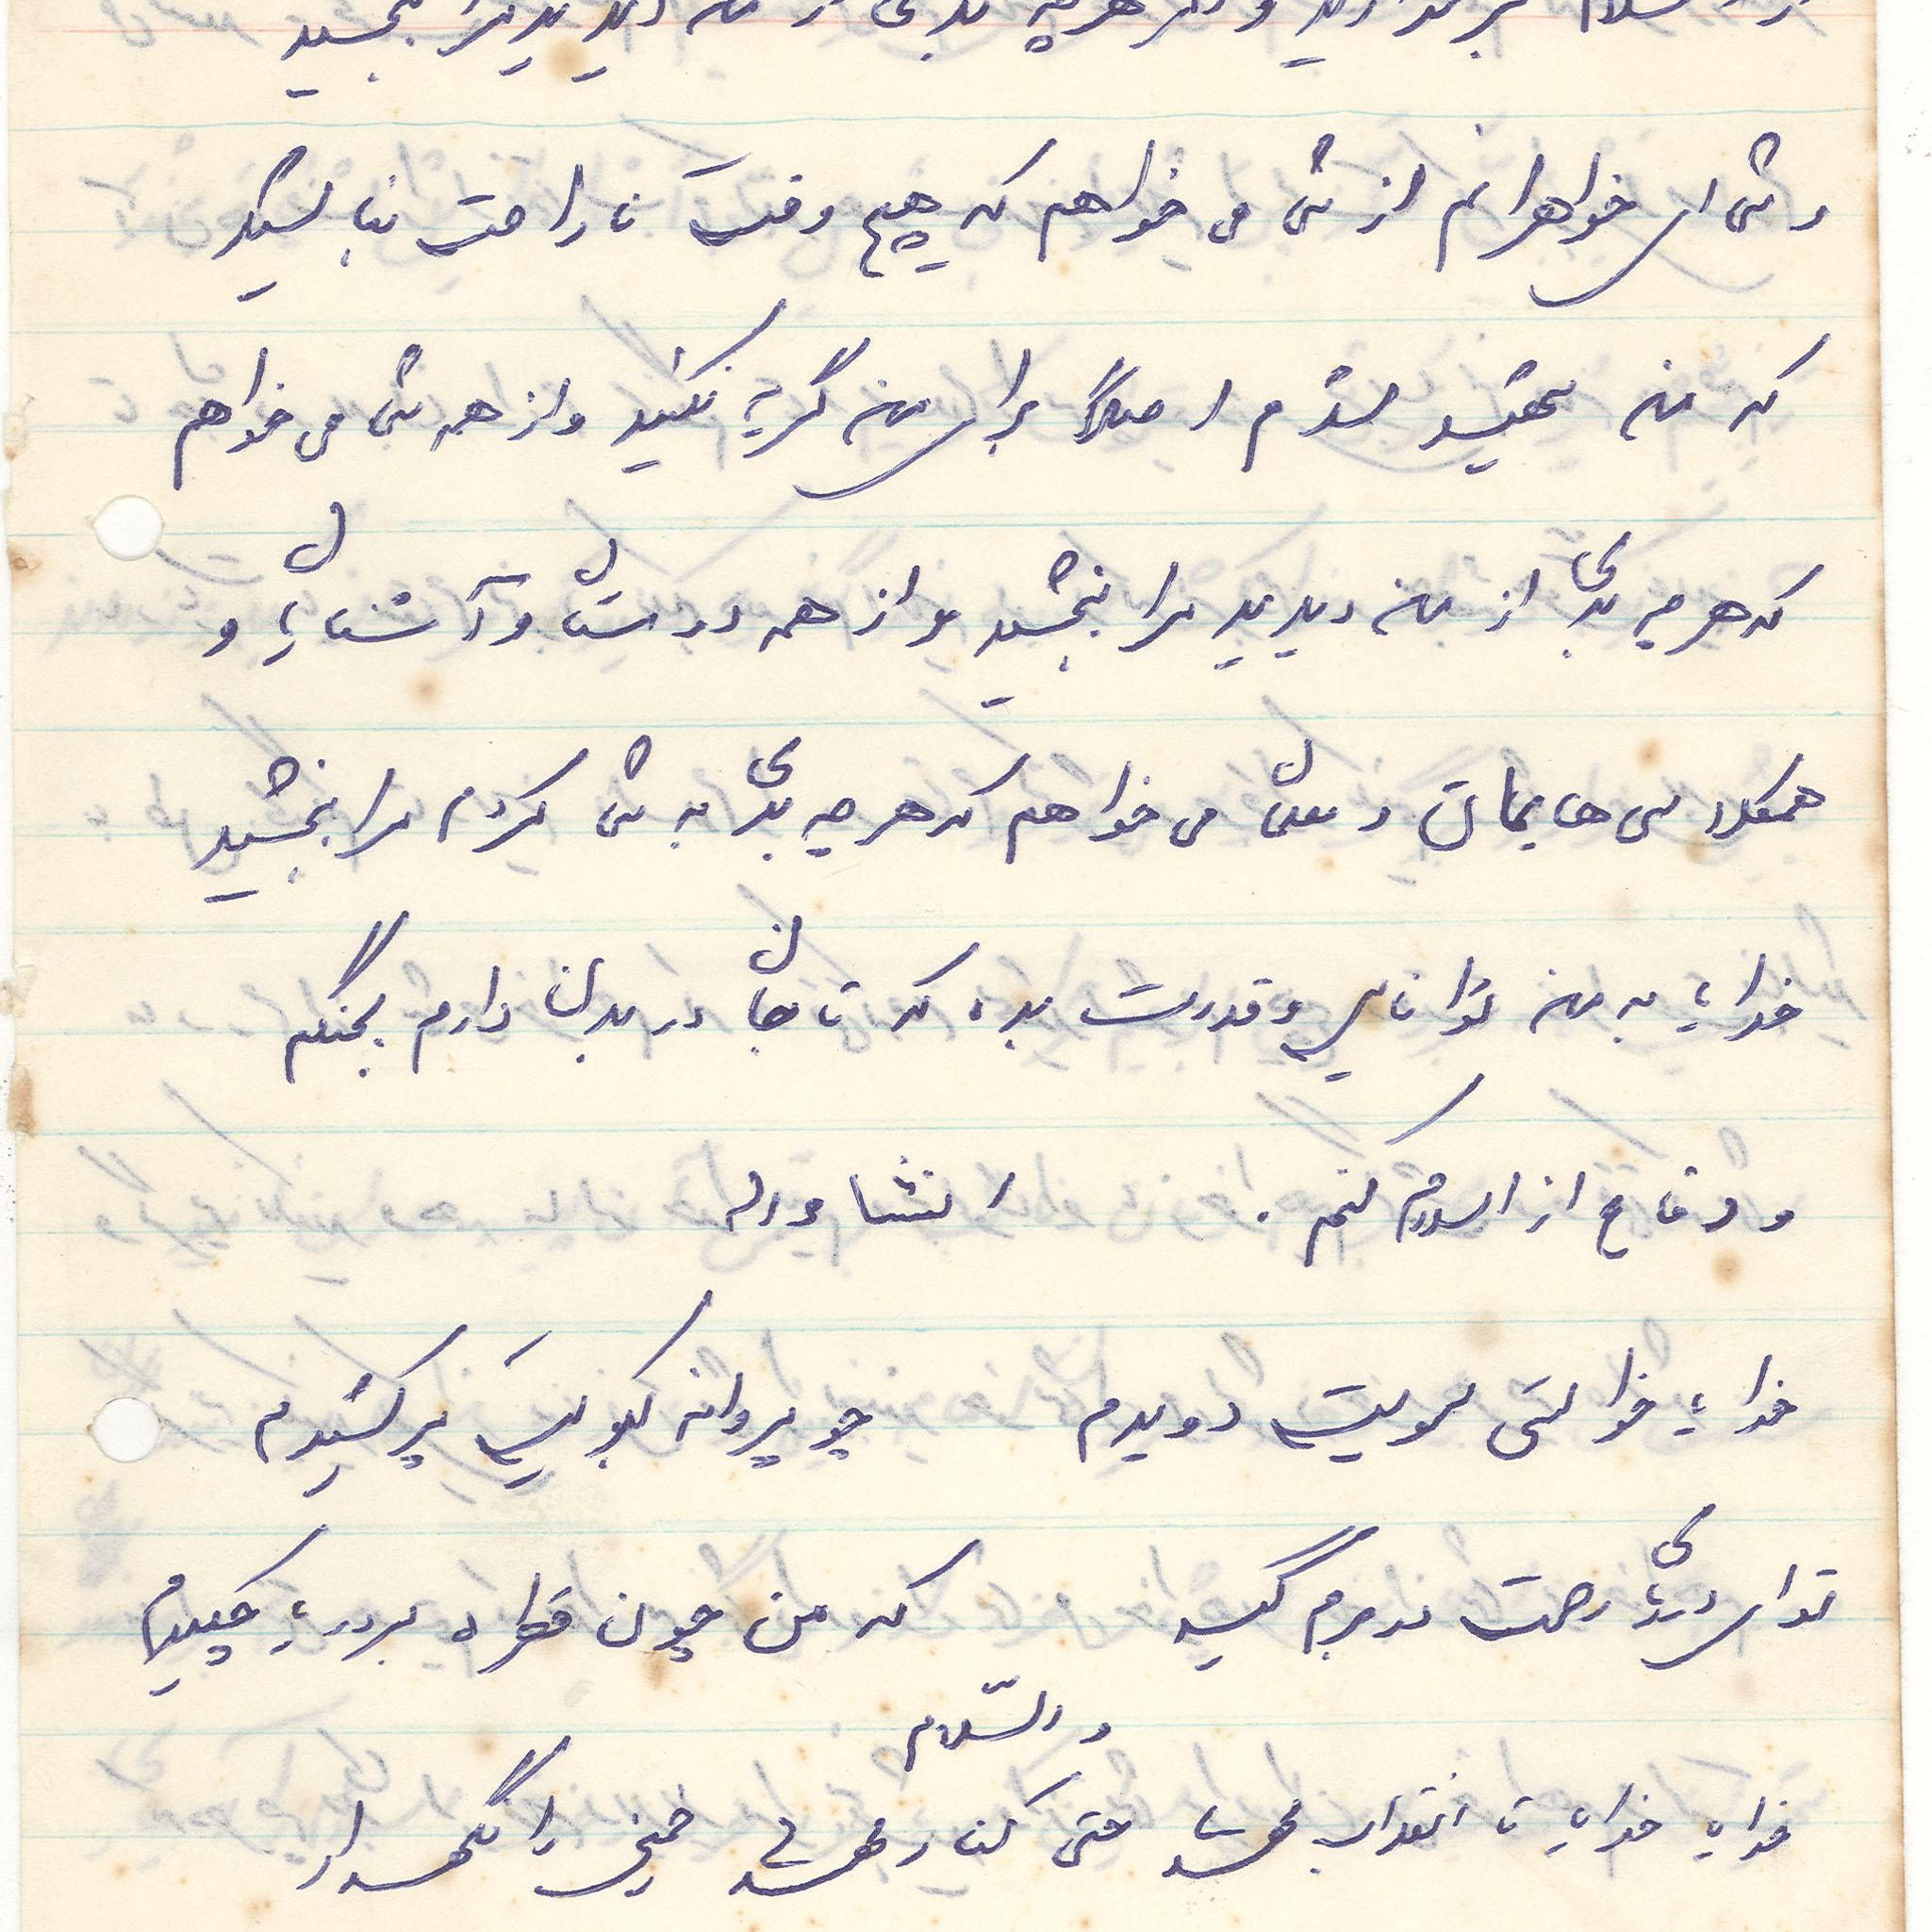 اسلام بر ندارید و دیگر هرچه بدی از من دیدید مرا ببخشید
و شما ای خواهرانم از شما می خواهم که هیچ وقت ناراحت نباشید
که من شهید شدم اصلاً برای من گریه نکنید و از همه شما می خواهم
که هر چه بدی از من دیدید مرا ببخشید و از همه دوستان و آشنایان و
همکلاسی هایمان و معلمان می خواهم که هر چه بدی به شما کردم مرا ببخشید
خدایا به من توانایی و قدرت بده که تا جان در بدن دارم بجنگم
و دفاع از اسلام کنم . انشاءالله
خدایا خواستی سویت دویدم چو پروانه بکویت پر کشیدم
تو ای دریای رحمت در برم گیر که من چون قطره بر دریا چکیدم
والسّلام
خدایا خدایا تا انقلاب مهدی حتی کنار مهدی خمینی را نگهدار